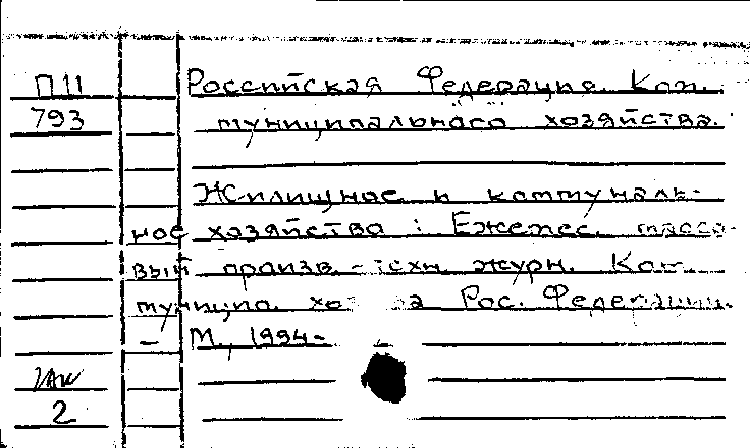 П11
793
Российская Федерация. Ком.
муниципального хозяйства.
Жилищное и коммуналь-
ное хозяйство : Ежемес. массо-
вый произв.-техн. журн. Ком.
муницип. хоз-ва Рос. Федерации.
- М., 1994-
2